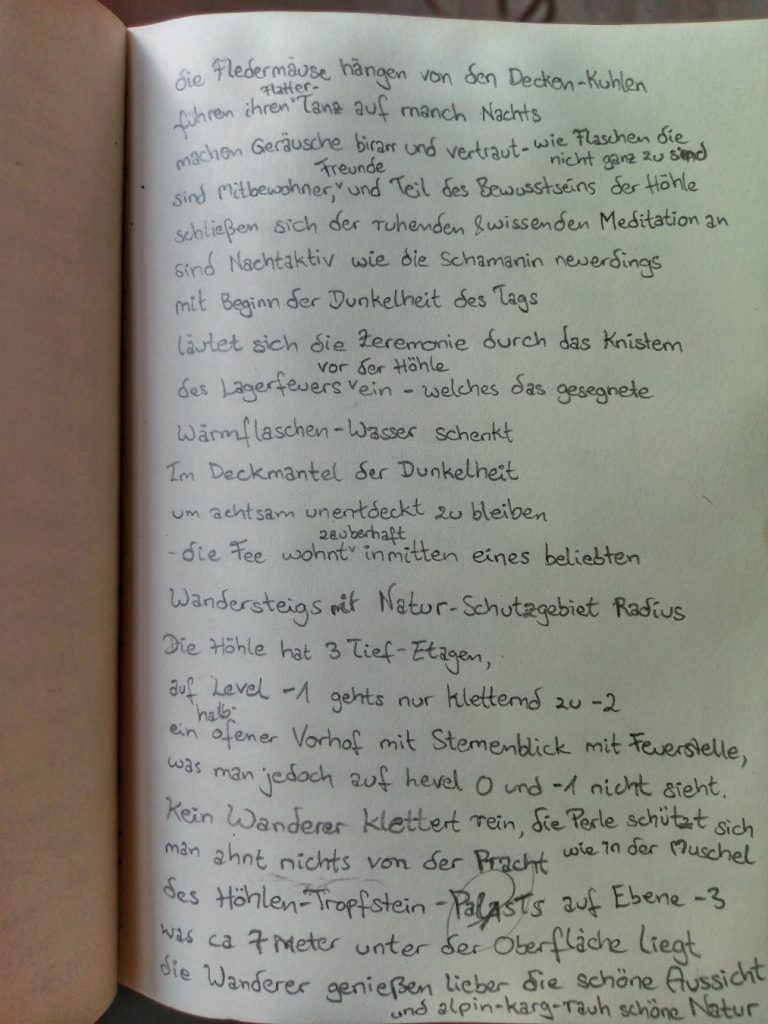 die Fledermäuse hängen von den Decken-Kuhlen
Flatter-
führen ihren Tanz auf manch Nachts
machen Geräusche birarr und vertraut - wie Flaschen die
nicht ganz zu sind
Freunde
sind Mitbewohner, und Teil des Bewusstseins der Höhle
schließen sich der ruhenden & wissenden Meditation an
sind Nachtaktiv wie die Schamanin neuerdings
mit Beginn der Dunkelheit des Tags
läutet sich die Zeremonie durch das Knistern
vor der Höhle
des Lagerfeuers ein - welches das gesegnete
Wärmflaschen-Wasser schenkt
Im Deckmantel der Dunkelheit
um achtsam unentdeckt zu bleiben
zauberhaft
- die Fee wohnt inmitten eines beliebten
Wandersteigs mit Natur-Schutzgebiet Radius
Die Höhle hat 3 Tief-Etagen,
auf Level -1 gehts nur kletternd zu -2
halb-
ein ofener Vorhof mit Sternenblick mit Feuerstelle,
was man jedoch auf Level 0 und -1 nicht sieht.
Kein Wanderer klettert rein, die Perle schützt sich
wie in der Muschel
man ahnt nichts von der Pracht
des Höhlen-Tropfstein-Palasts auf Ebene -3
was ca 7 Meter unter der Oberfläche liegt
die Wanderer genießen lieber die schöne Aussicht
und alpin-karg-rauh schöne Natur